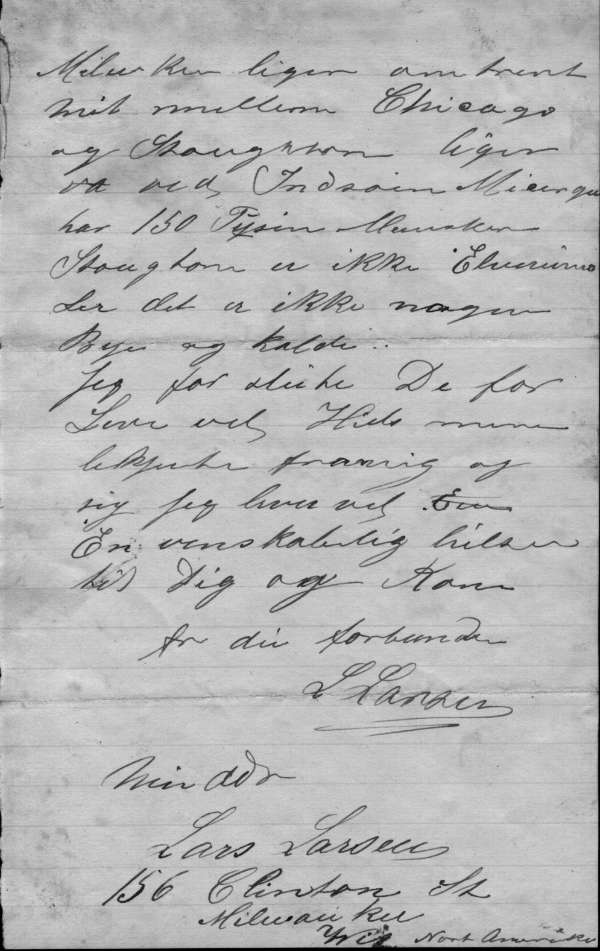 Milwken liger omtrent
Mit mellem Chicago
og Stougthon liger
ved Indsøien
har 150 Tysin Mensker
Stougtom er ikke
der det er ikke nogen
Bye og kalde..
Jeg for slute De for
Leve vel, Hils mine
fra mig og
sig jeg lever vel
En venskabelig hilsen
til Dig og Kone
fra din forbunden
L Larsen
Min ddr
Lars Larsen
156 Clinton St
Milwauke
Wis Nort Amerika